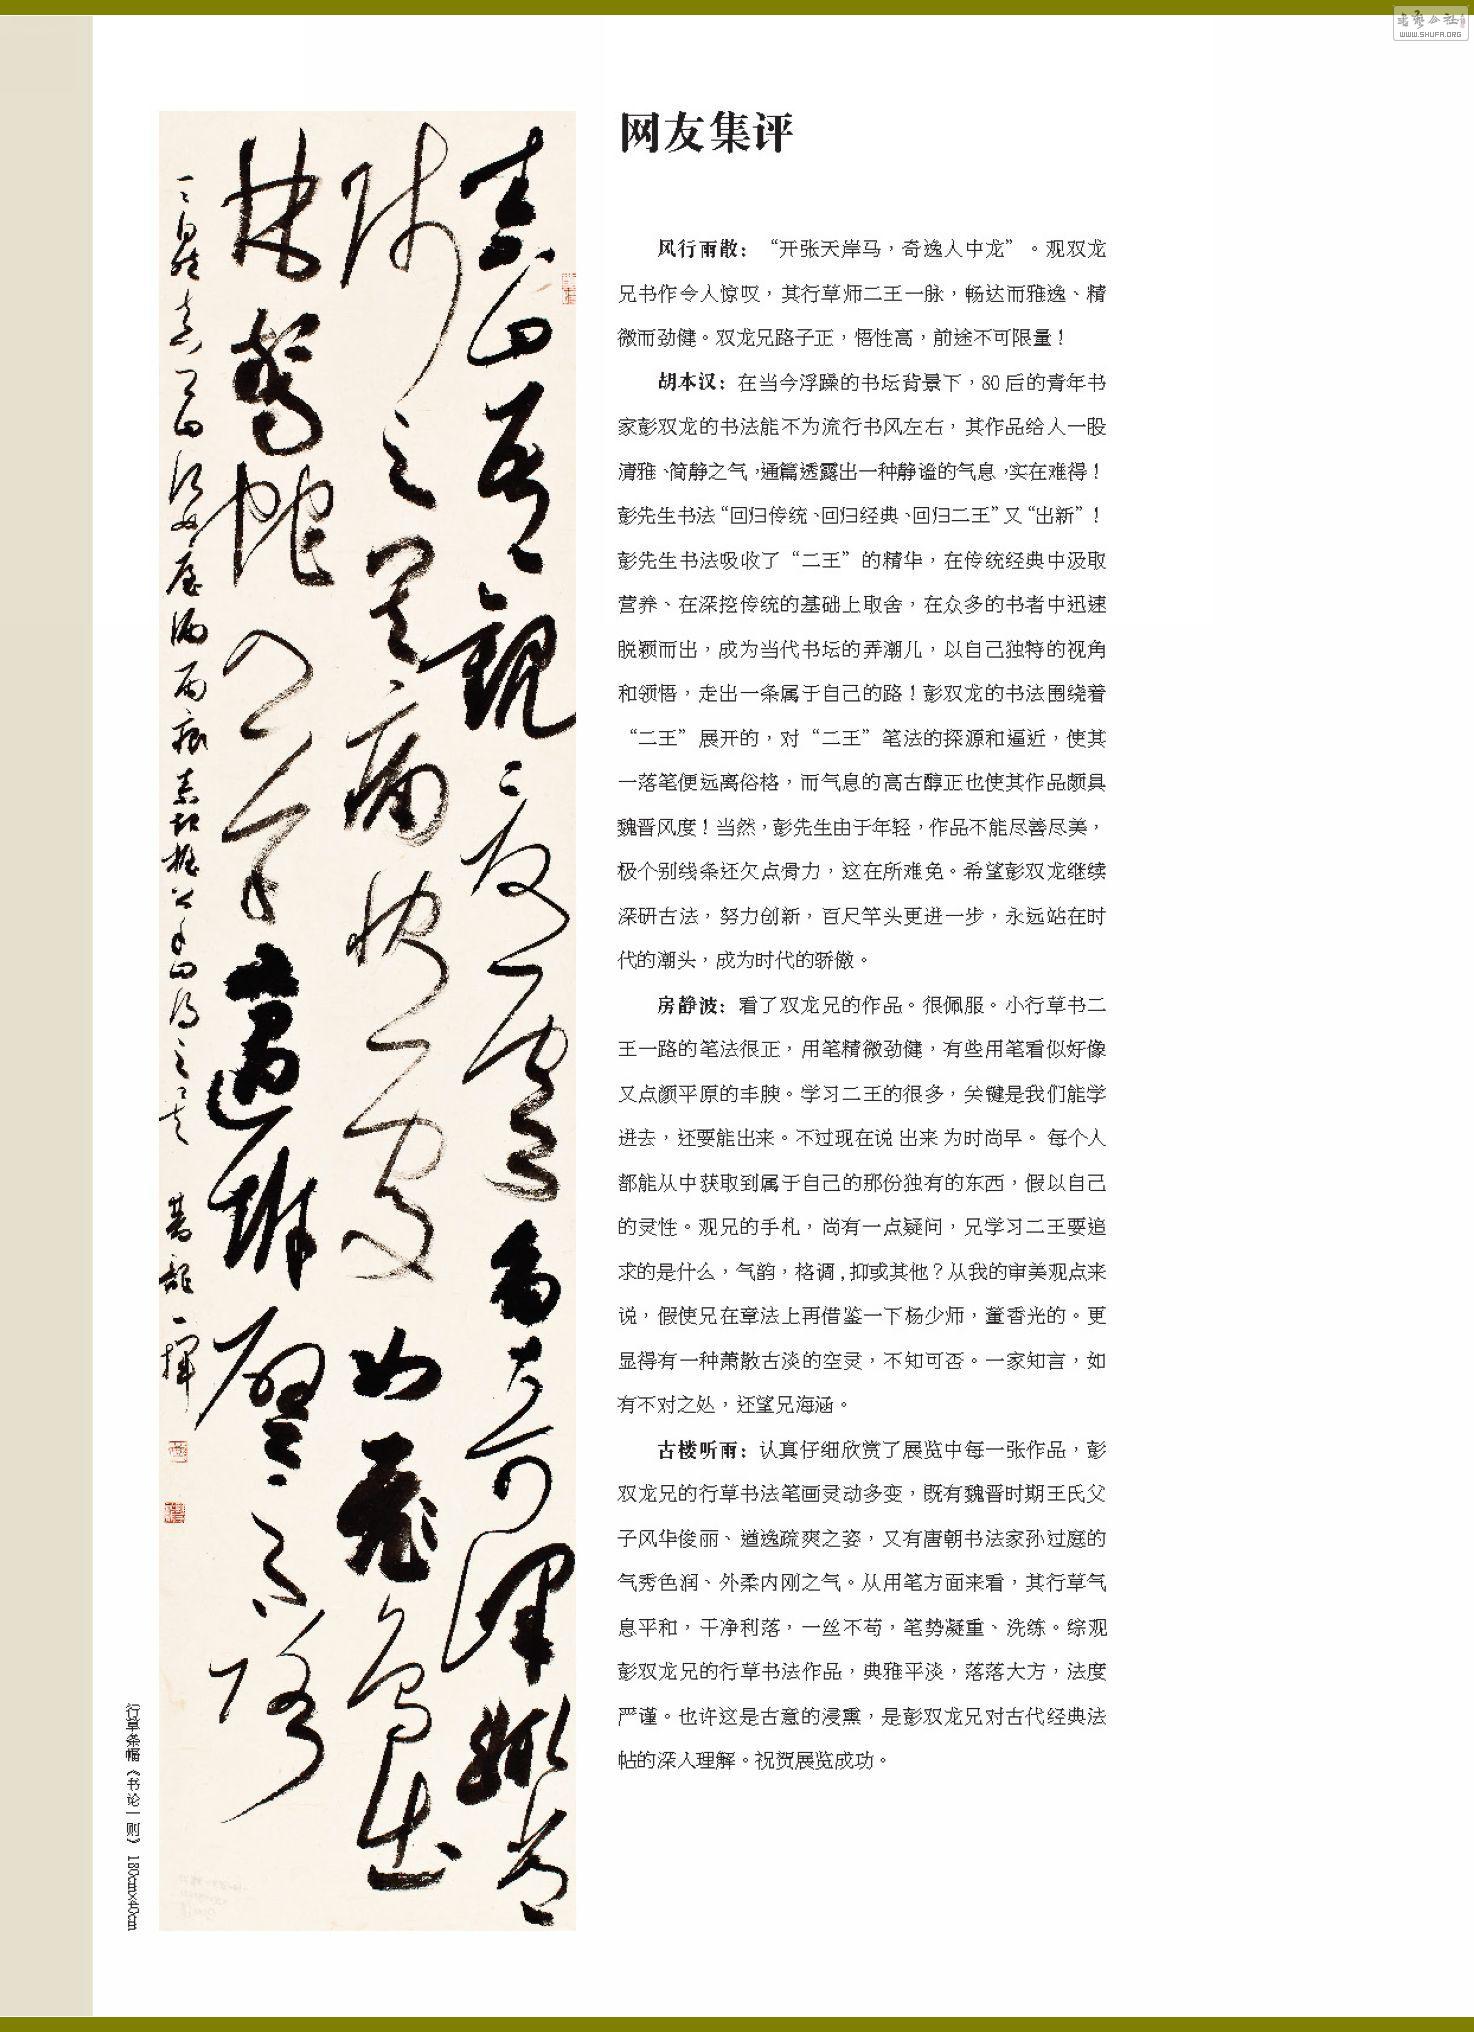 书艺公社
WWW.SHUFA.ORG
素曰吾觀夏雲多奇峰輒常
師之其痛快處如飛鳥出
林驚蛇入草遇坼壁之路
一一自然真曰何如屋漏雨痕素起握公手曰得之矣 龍一揮
行草条幅《书论一则》 180cm×45cm
网友集评
风行雨散：“开张天岸马，奇逸人中龙”。观双龙
兄书作令人惊叹，其行草师二王一脉，畅达而雅逸、精
微而劲健。双龙兄路子正，悟性高，前途不可限量！
胡本汉：在当今浮躁的书坛背景下，80 后的青年书
家彭双龙的书法能不为流行书风左右，其作品给人一股
清雅、简静之气，通篇透露出一种静谧的气息，实在难得！
彭先生书法“回归传统、回归经典、回归二王”又“出新”！
彭先生书法吸收了“二王”的精华，在传统经典中汲取
营养、在深挖传统的基础上取舍，在众多的书者中迅速
脱颖而出，成为当代书坛的弄潮儿，以自己独特的视角
和领悟，走出一条属于自己的路！彭双龙的书法围绕着
“二王”展开的，对“二王”笔法的探源和逼近，使其
一落笔便远离俗格，而气息的高古醇正也使其作品颇具
魏晋风度！当然，彭先生由于年轻，作品不能尽善尽美，
极个别线条还欠点骨力，这在所难免。希望彭双龙继续
深研古法，努力创新，百尺竿头更进一步，永远站在时
代的潮头，成为时代的骄傲。
房静波：看了双龙兄的作品。很佩服。小行草书二
王一路的笔法很正，用笔精微劲健，有些用笔看似好像
又点颜平原的丰腴。学习二王的很多，关键是我们能学
进去，还要能出来。不过现在说 出来 为时尚早。 每个人
都能从中获取到属于自己的那份独有的东西，假以自己
的灵性。观兄的手札，尚有一点疑问，兄学习二王要追
求的是什么，气韵，格调 , 抑或其他？从我的审美观点来
说，假使兄在章法上再借鉴一下杨少师，董香光的。更
显得有一种萧散古淡的空灵，不知可否。一家知言，如
有不对之处，还望兄海涵。
古楼听雨：认真仔细欣赏了展览中每一张作品，彭
双龙兄的行草书法笔画灵动多变，既有魏晋时期王氏父
子风华俊丽、遒逸疏爽之姿，又有唐朝书法家孙过庭的
气秀色润、外柔内刚之气。从用笔方面来看，其行草气
息平和，干净利落，一丝不苟，笔势凝重、洗练。综观
彭双龙兄的行草书法作品，典雅平淡，落落大方，法度
严谨。也许这是古意的浸熏，是彭双龙兄对古代经典法
帖的深入理解。祝贺展览成功。